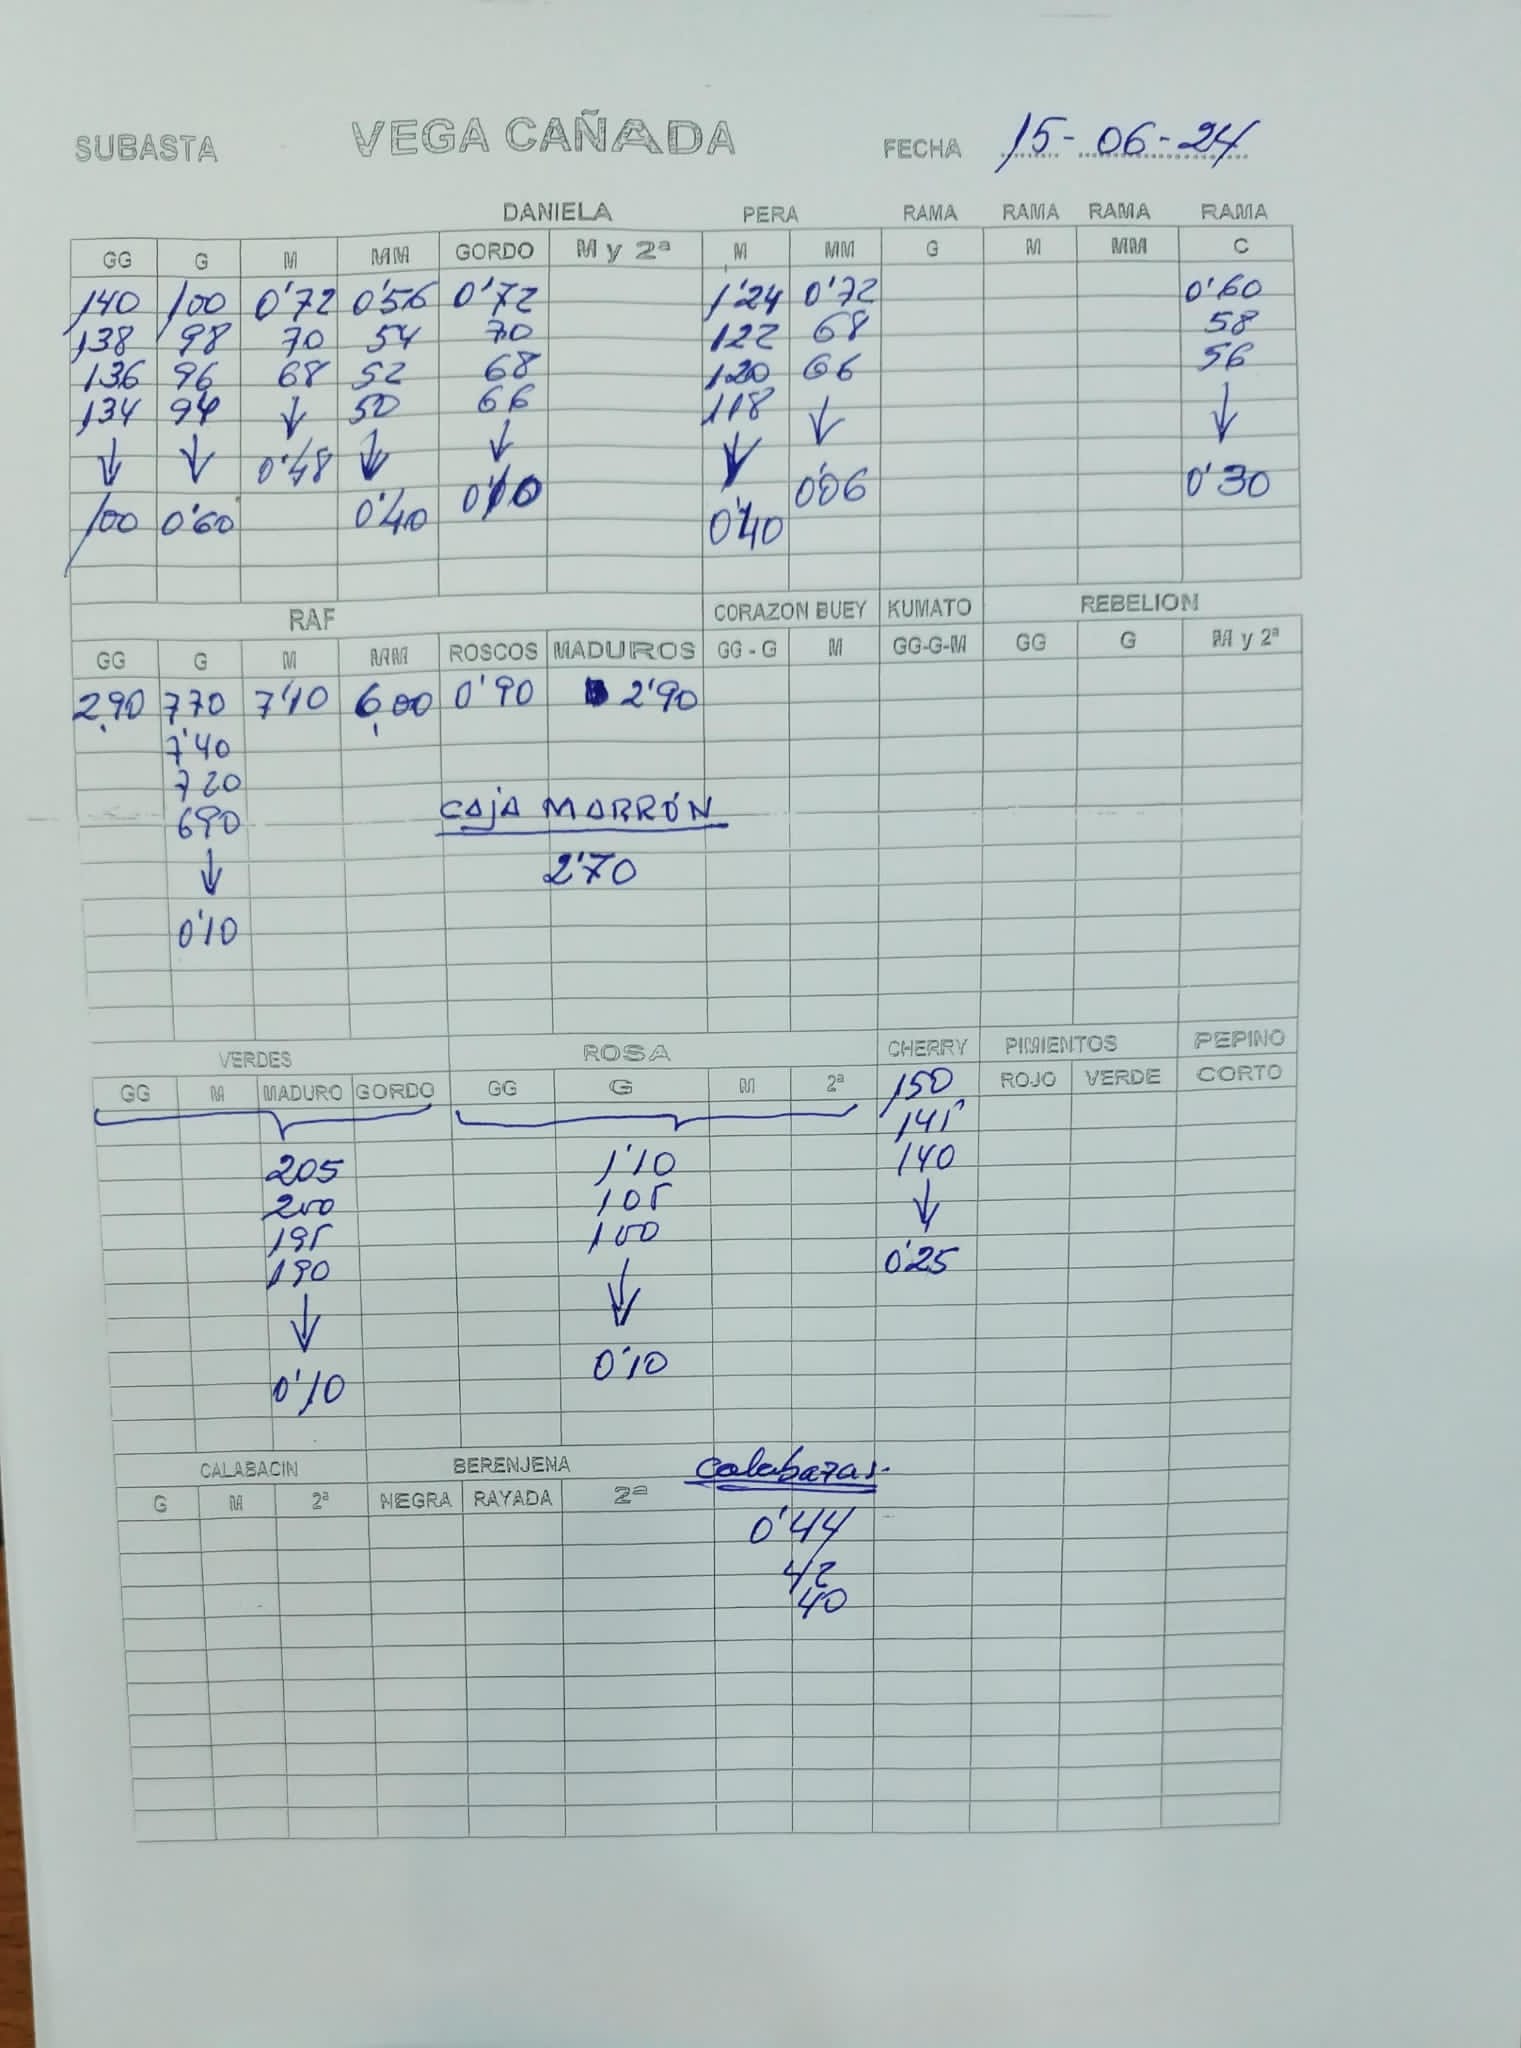 SUBASTA VEGA CAÑADA FECHA 15-06-24
DANIELA PERA RAMA RAMA RAMA RAMA
GG G M MM GORDO M y 2ª M MM G M MM C
140 100 0'72 0'56 0'72 1'24 0'72 0'60
138 98 70 54 70 122 68 58
136 96 68 52 68 120 66 56
134 94 ↓ 50 66 118 ↓ ↓
↓ ↓ 0'48 ↓ ↓ ↓ 0'06 0'30
100 0'60 0'40 0'10 0'40
RAF CORAZON BUEY KUMATO REBELION
GG G M MM ROSCOS MADUROS GG - G M GG-G-M GG G M y 2ª
2,90 770 7'10 6,00 0'90 2'90
7'40
720
690
CAJA MARRÓN
↓ 2'70
0'10
VERDES ROSA CHERRY PIMIENTOS PEPINO
GG M MADURO GORDO GG G M 2ª 150 ROJO VERDE CORTO
145
205 1'10 140
200 105 ↓
195 100 0'25
190 ↓
↓ 0'10
0'10
CALABACIN BERENJENA Calabazas.
G M 2ª NEGRA RAYADA 2ª
0'44
42
40